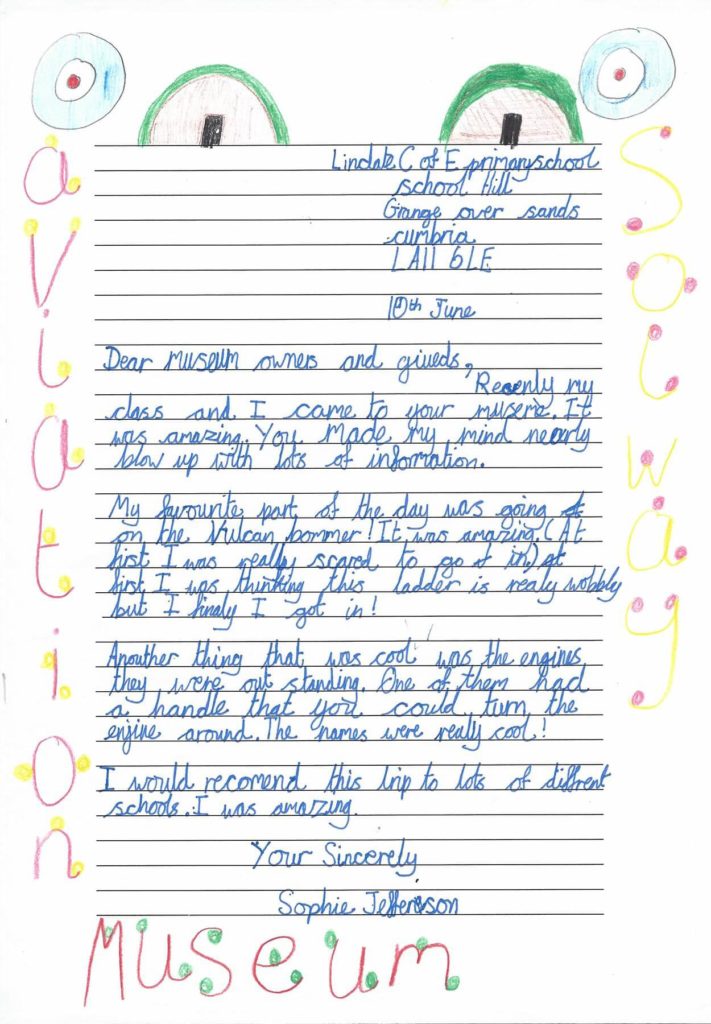 Lindale C of E primary school
school Hill
Grange over sands
cumbria
LA11 6LE
10th June
Dear museum owners and giueds,
Recenly my
class and. I came to your museme. It
was amazing. You made my mind nearly
blow up with lots of information.
My favourite part of the day was going
on the Vulcan bommer! It was amazing. (At
first I was really scared to go in) at
first I was thinking this ladder is realy wobbly
but I finaly I got in!
Anouther thing that was cool was the engines
they were out standing. One of them had
a handle that you could turn the
enjine around. The names were really cool!
I would recomend this trip to lots of diffrent
schools. I was amazing.
Your Sincerely
Sophie Jefferson
Solway
aviation
Museum